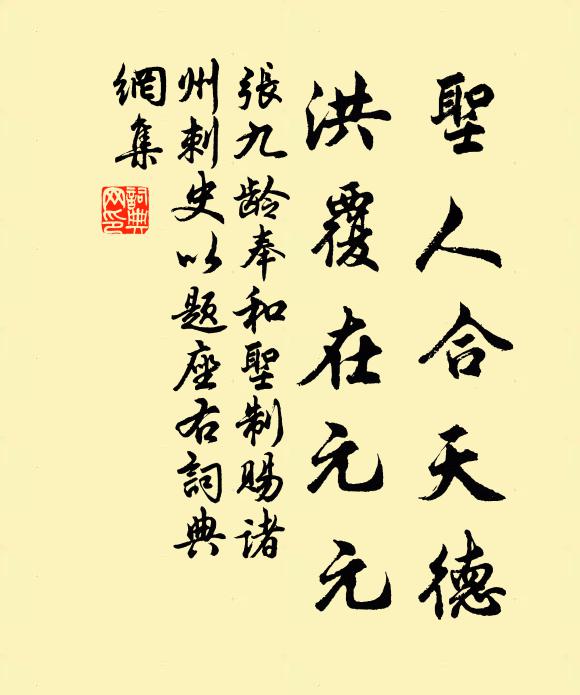 聖人合天德
洪覆在元元
張九齡奉和聖制賜諸
州刺史以題座右詞典
網集
詞典網印